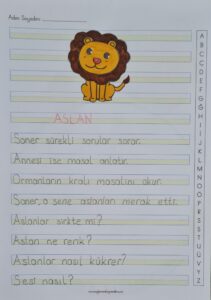 Adım Soyadım:
ASLAN
Soner sürekli sorular sorar.
Annesi ise masal anlatır.
Ormanların kralı masalını okur.
Soner, o sene aslanları merak etti.
Aslanlar sirkte mi?
Aslan ne renk?
Aslanlar nasıl kükrer?
Sesi nasıl?
A
B
C
Ç
D
E
F
G
Ğ
H
I
İ
J
K
L
M
N
O
Ö
P
R
S
Ş
T
U
Ü
V
Y
Z